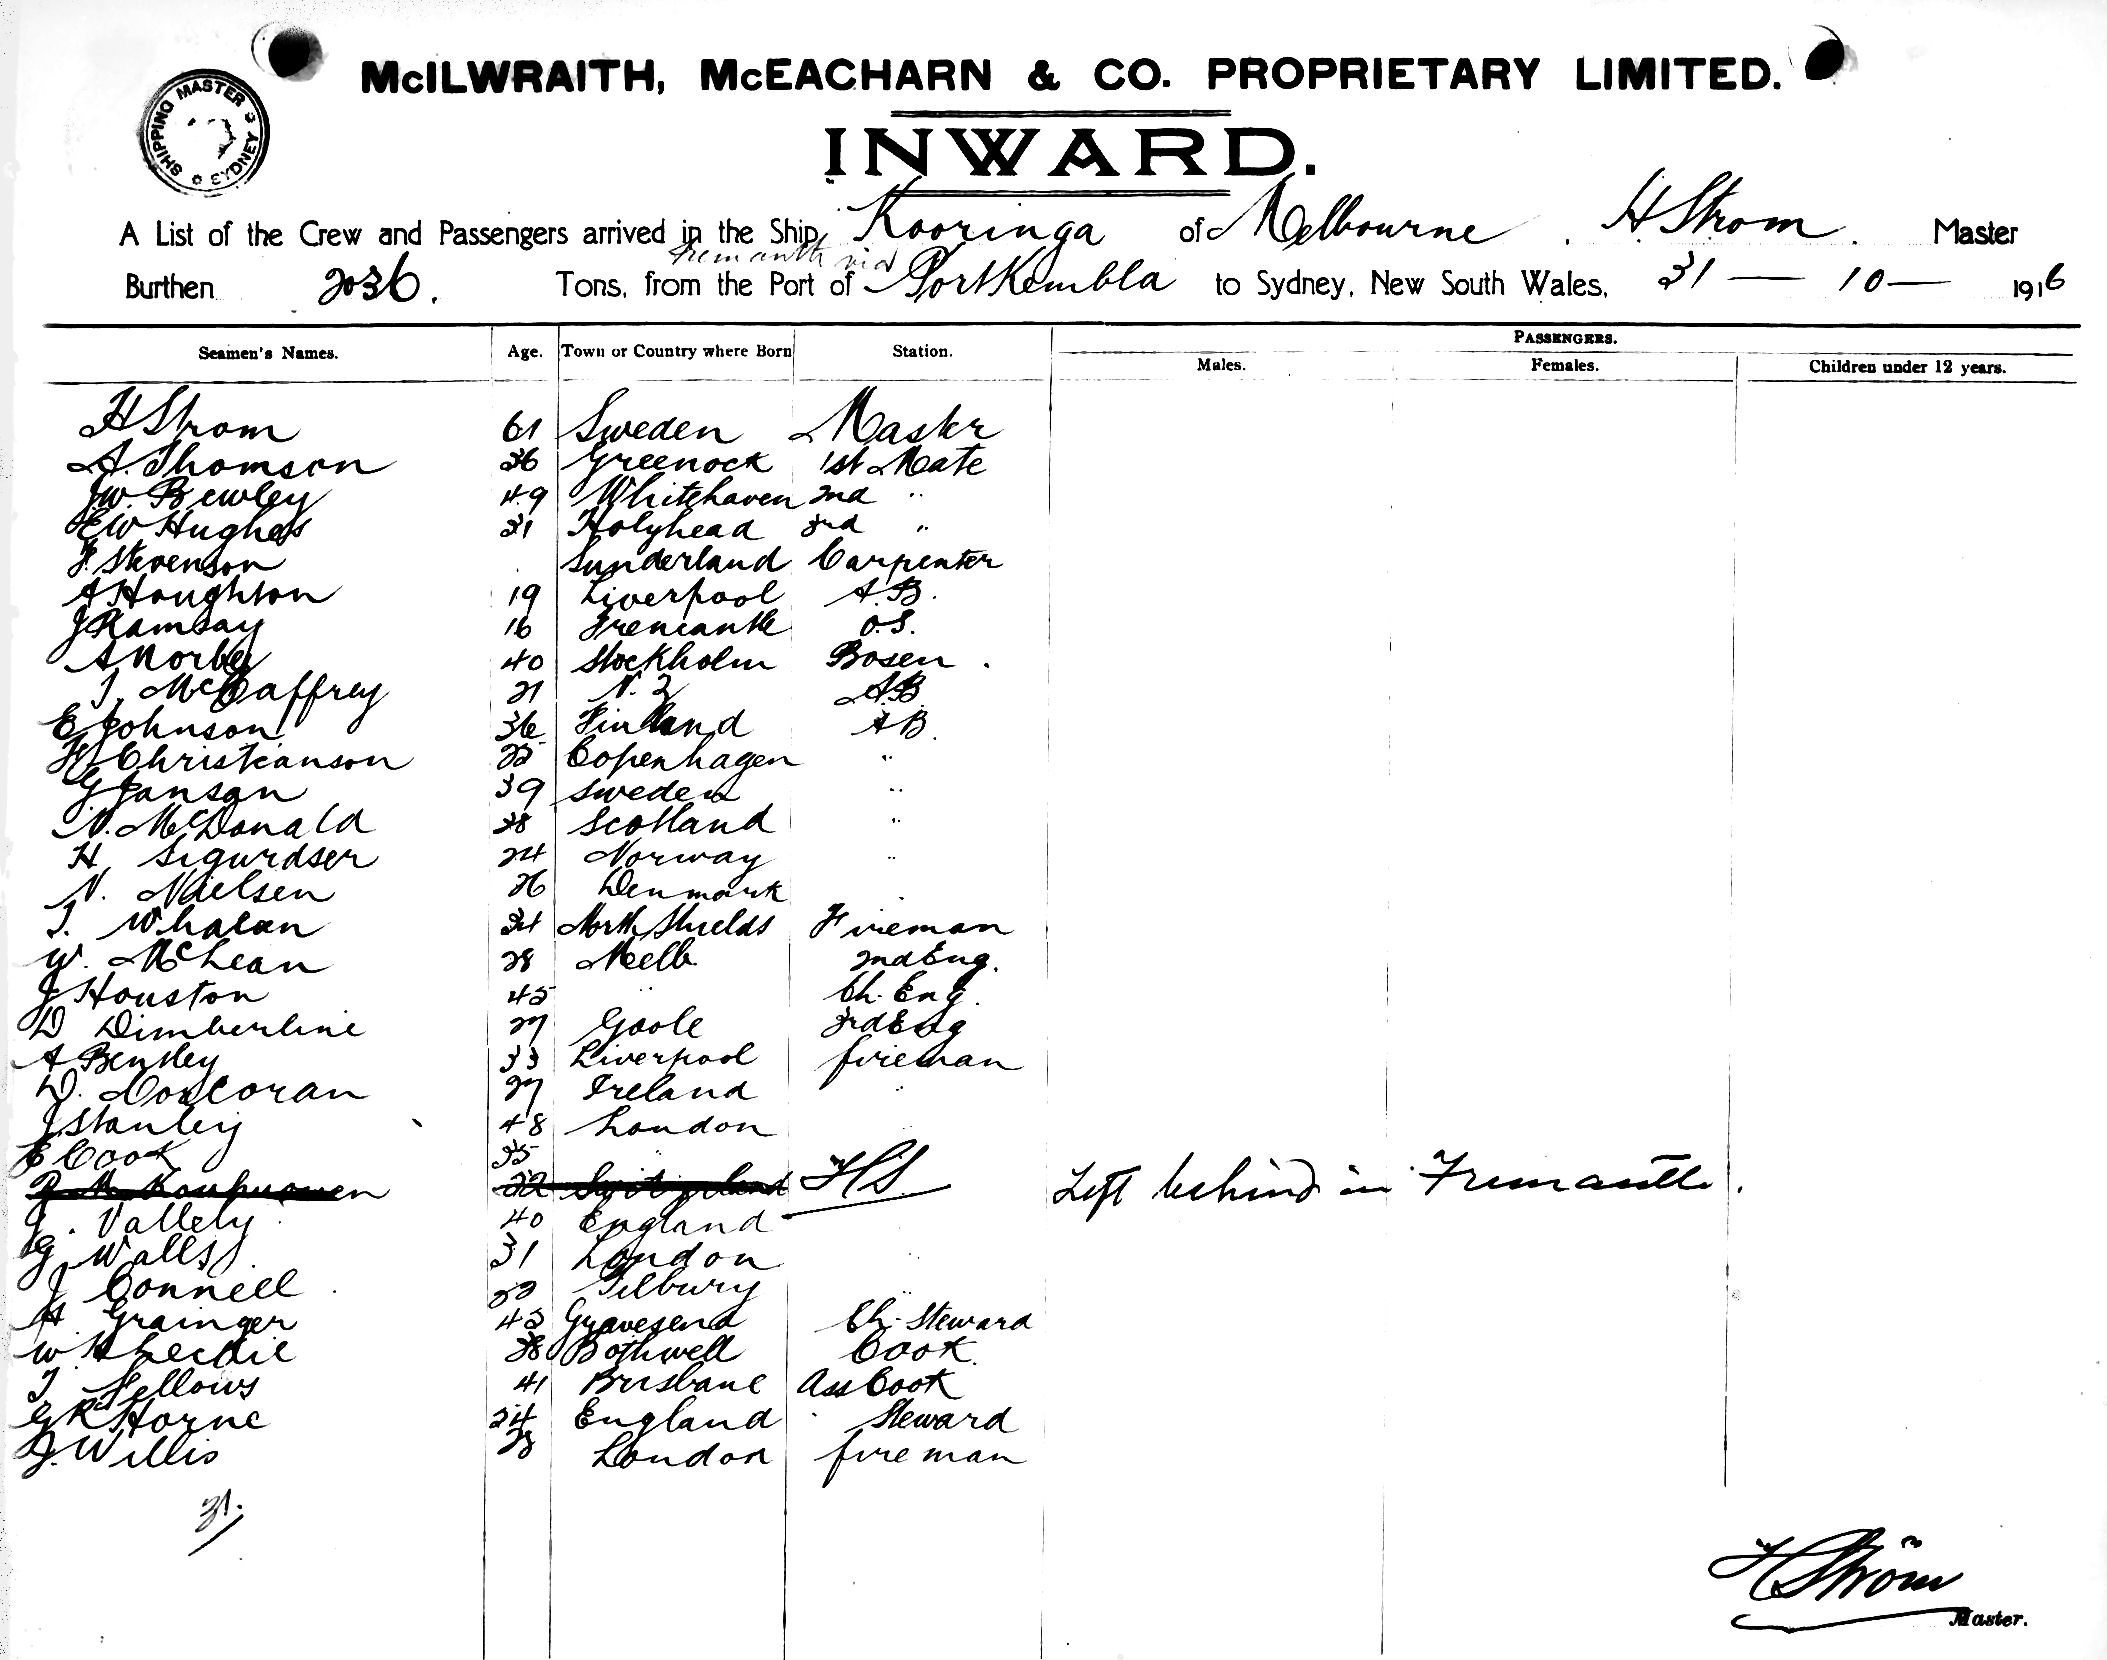 SHIPPING MASTER SYDNEY
McILWRAITH, McEACHARN & CO. PROPRIETARY LIMITED.
INWARD.
A List of the Crew and Passengers arrived in the Ship Kooringa of Melbourne. H Strom. Master
Fremantle via
Burthen 2036. Tons, from the Port of Port Kembla to Sydney, New South Wales, 31 — 10 — 1916
PASSENGERS.
Seamen's Names. Age. Town or Country where Born Station. Males. Females. Children under 12 years.
H Strom 61 Sweden Master
A. Thomson 36 Greenock 1st Mate
J.W. Bewley 49 Whitehaven 2nd "
E W Hughes 31 Holyhead 3rd "
F. Stevenson Sunderland Carpenter
A Houghton 19 Liverpool A.B.
J Ramsay 16 Fremantle O.S.
A Norby 40 Stockholm Bosen.
J. McCaffrey 21 N. Z AB
E Johnson 36 Finland AB.
H Christianson 22 Copenhagen "
G Janson 39 Sweden "
N. McDonald 28 Scotland "
H Sigurdser 24 Norway "
N. Nielsen 26 Denmark
T. Whalan 34 North Shields Fireman
W. McLean 28 Melb. 2nd Eng.
J Houston 45 " Ch. Eng.
D Dimberline 27 Goole 3rd Eng
A Bentley 33 Liverpool fireman
D. Corcoran 27 Ireland "
J Stanley 48 London
E Cook 35 "
22 Switzerland HS Left behind in Fremantle.
J. Vallely 40 England
G Walls 31 London
J Connell Tilbury
H Grainger 42 Gravesend Ch. Steward
W. 38 Bothwell Cook.
T Fellows 41 Brisbane Ass Cook
G R Horne 24 England Steward
J. Willis 28 London fireman
31.
H Ström
Master.